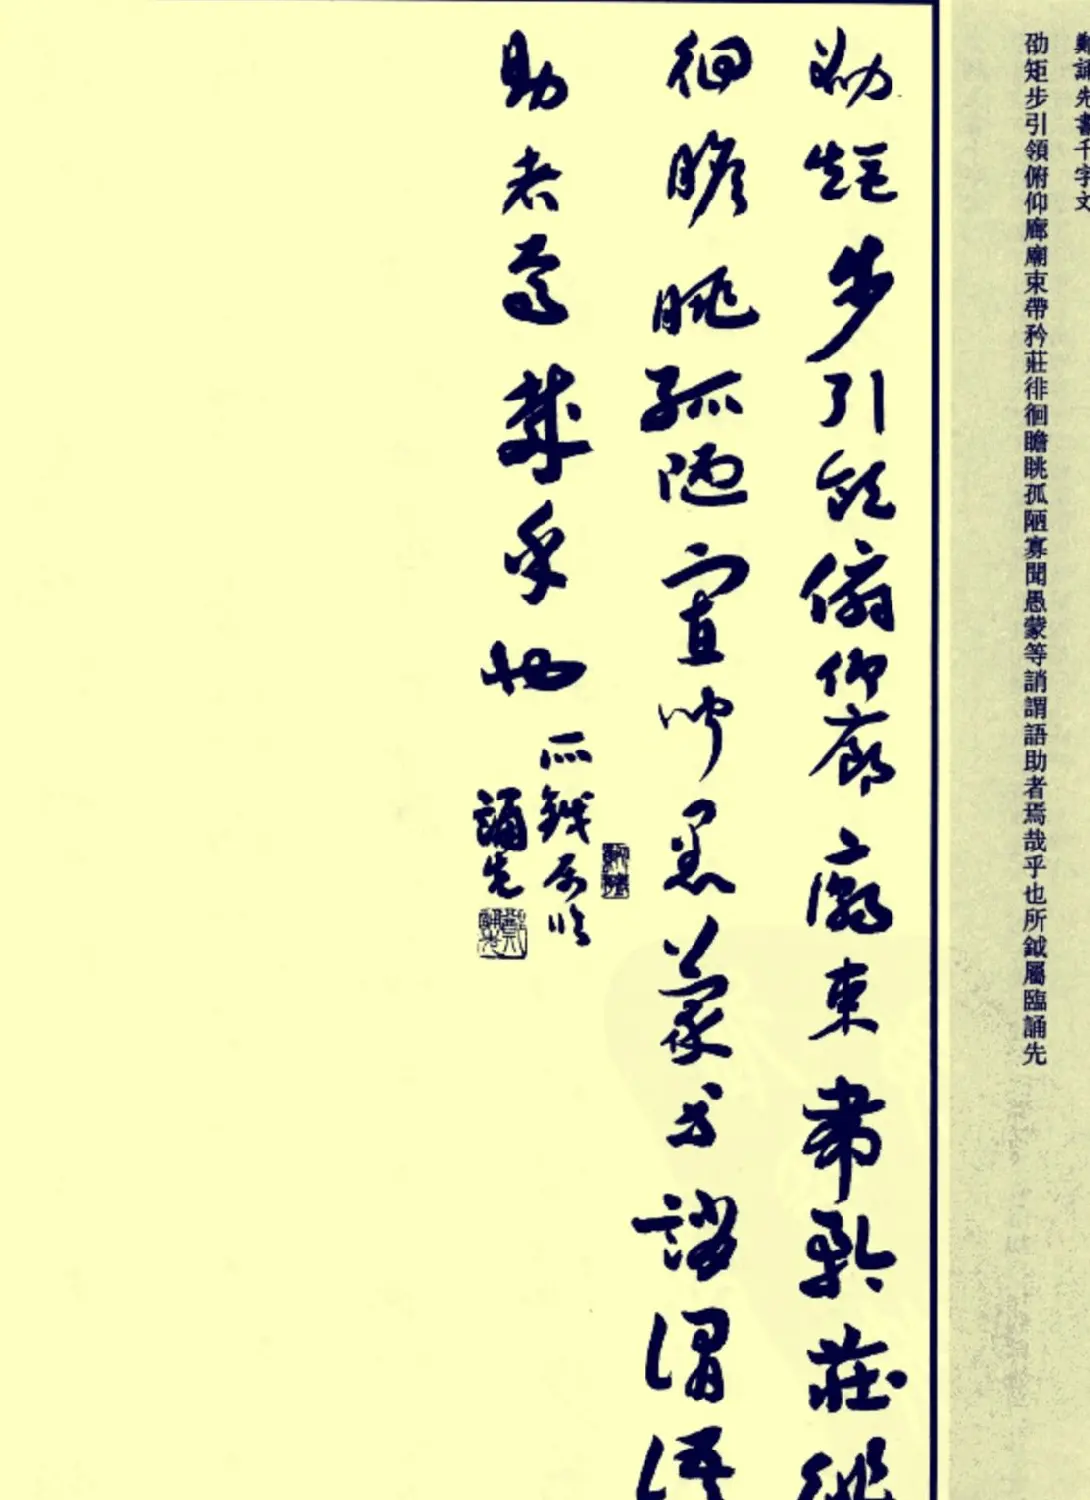 鄭誦先書千字文
劭矩步引領俯仰廊廟束帶矜莊徘徊瞻眺孤陋寡聞愚蒙等誚謂語助者焉哉乎也所鉞屬臨誦先
劭矩步引領俯仰廊廟束帶矜莊徘
徊瞻眺孤陋寡聞愚蒙等誚謂語
助者焉哉乎也
所鉞屬臨
誦先